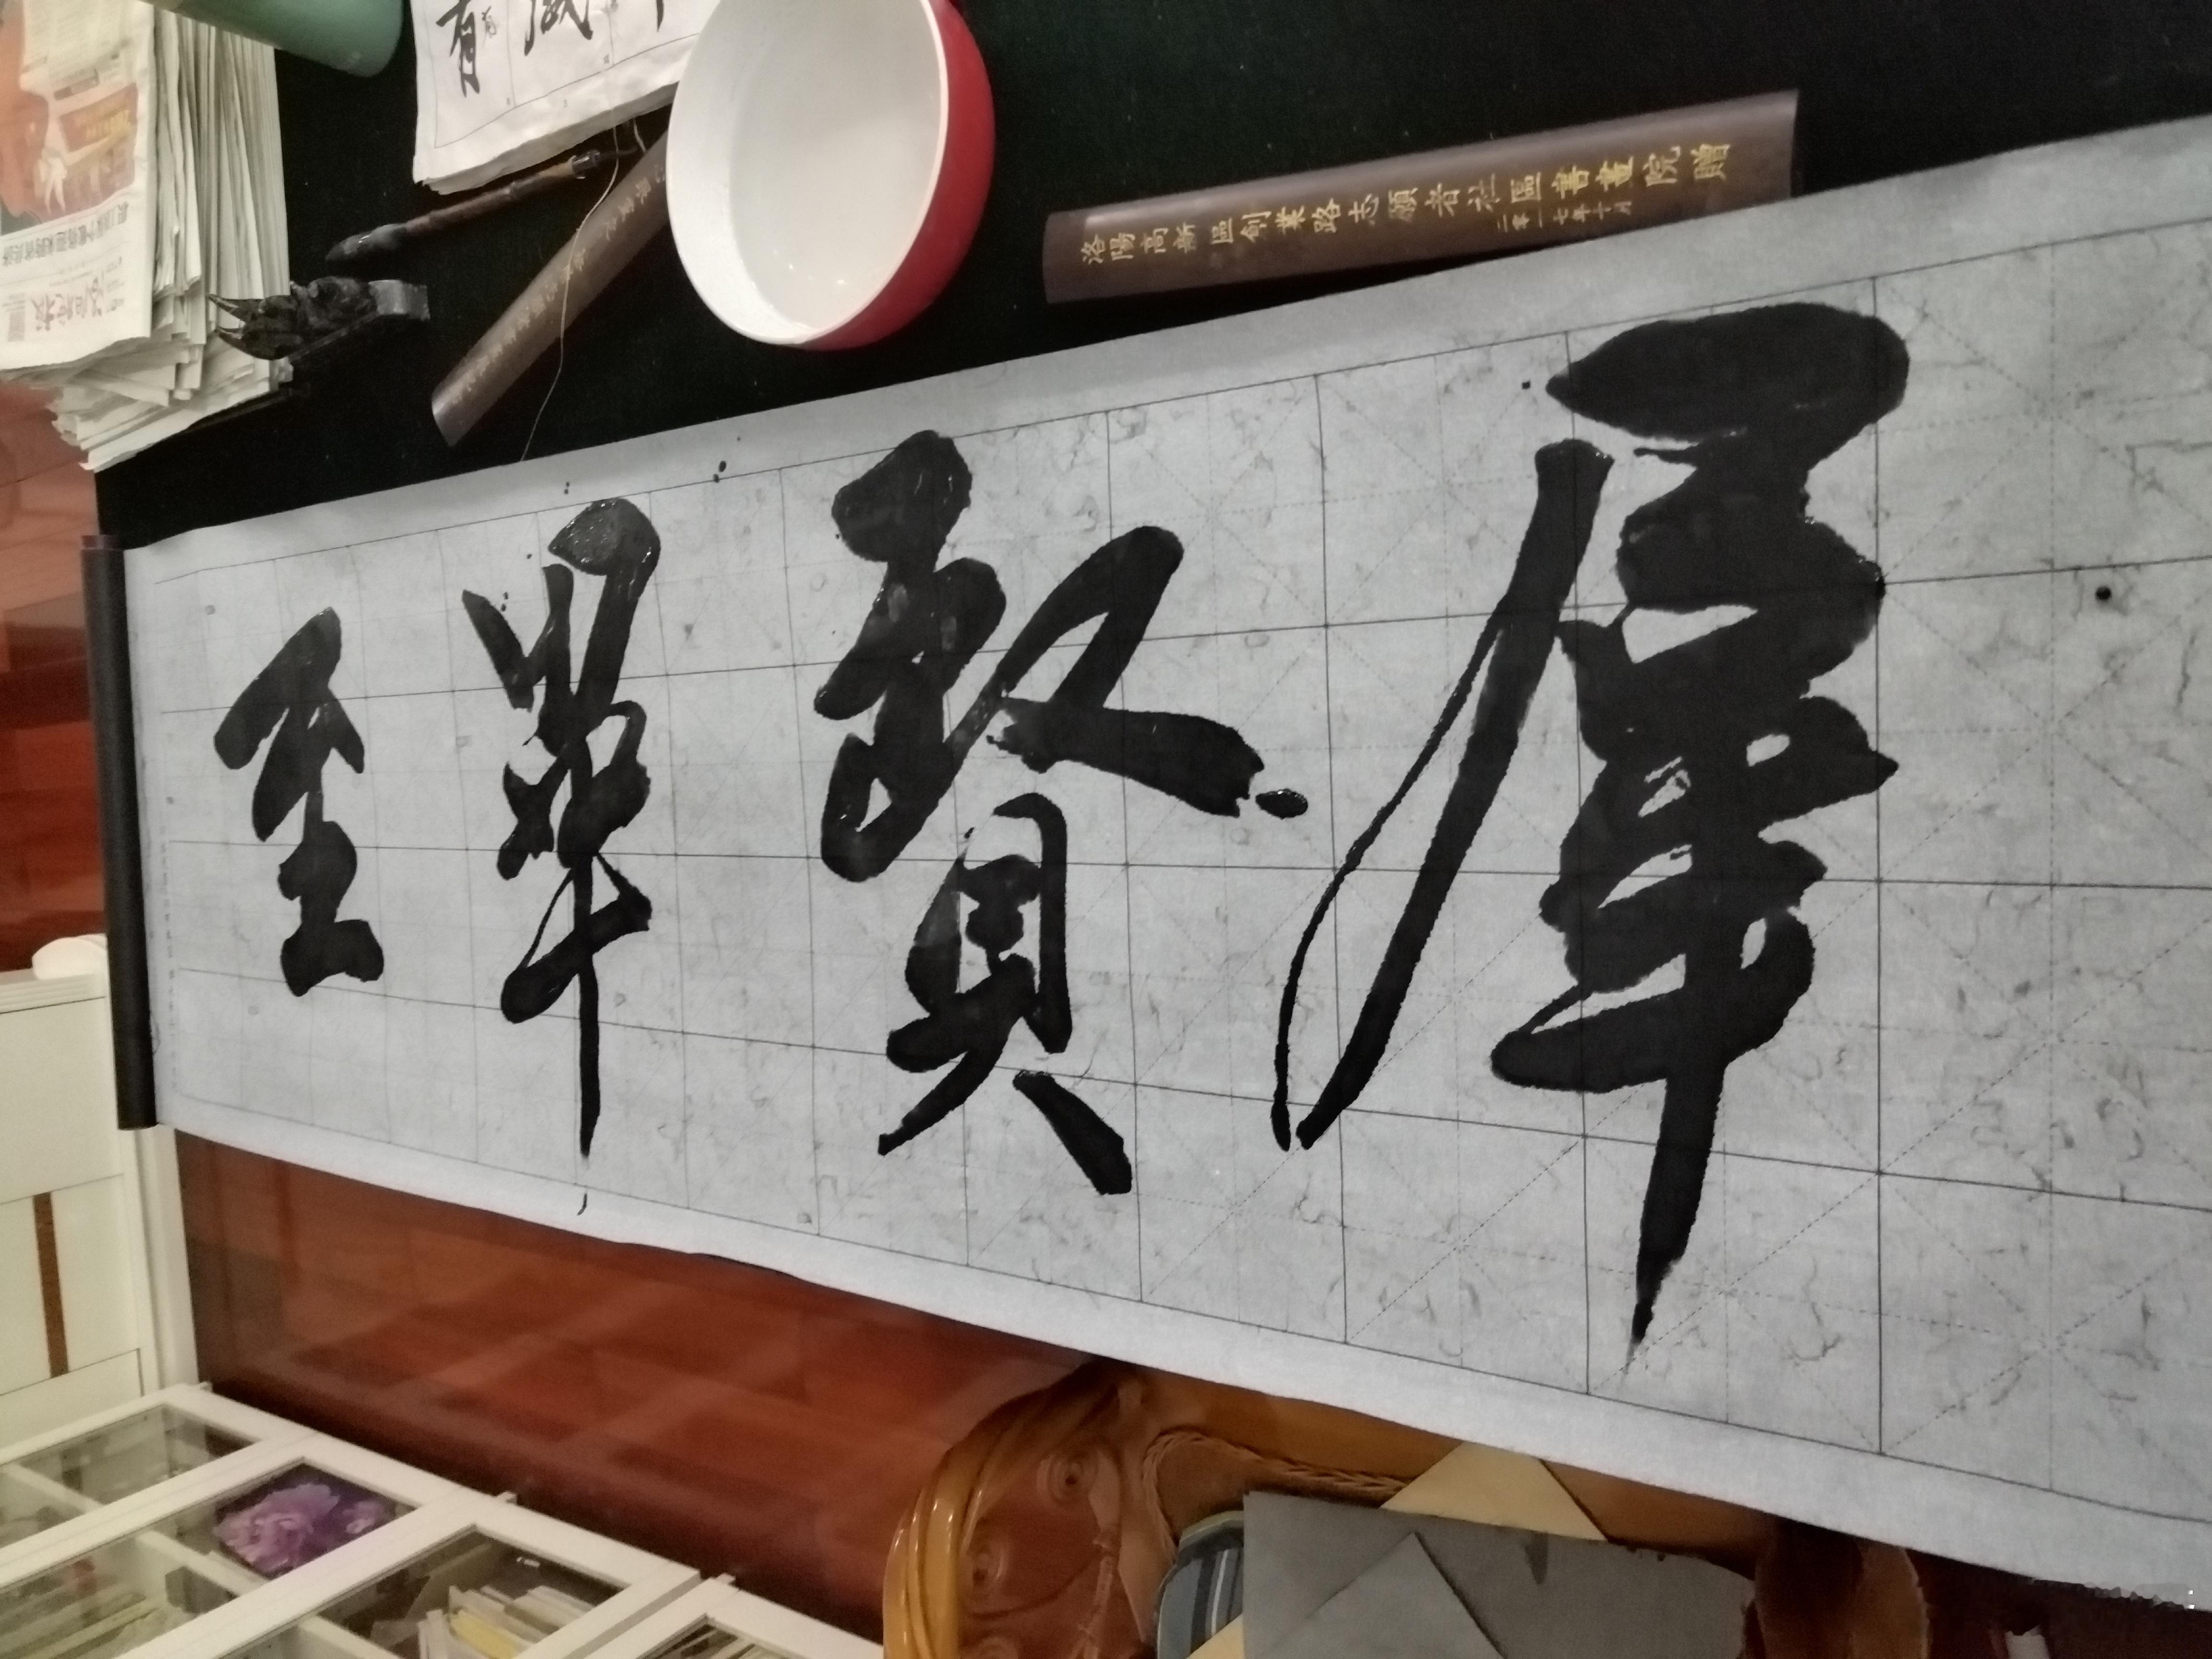 羣賢畢至
洛陽高新區創業路志願者社區書畫院贈
二零一七年十月
有